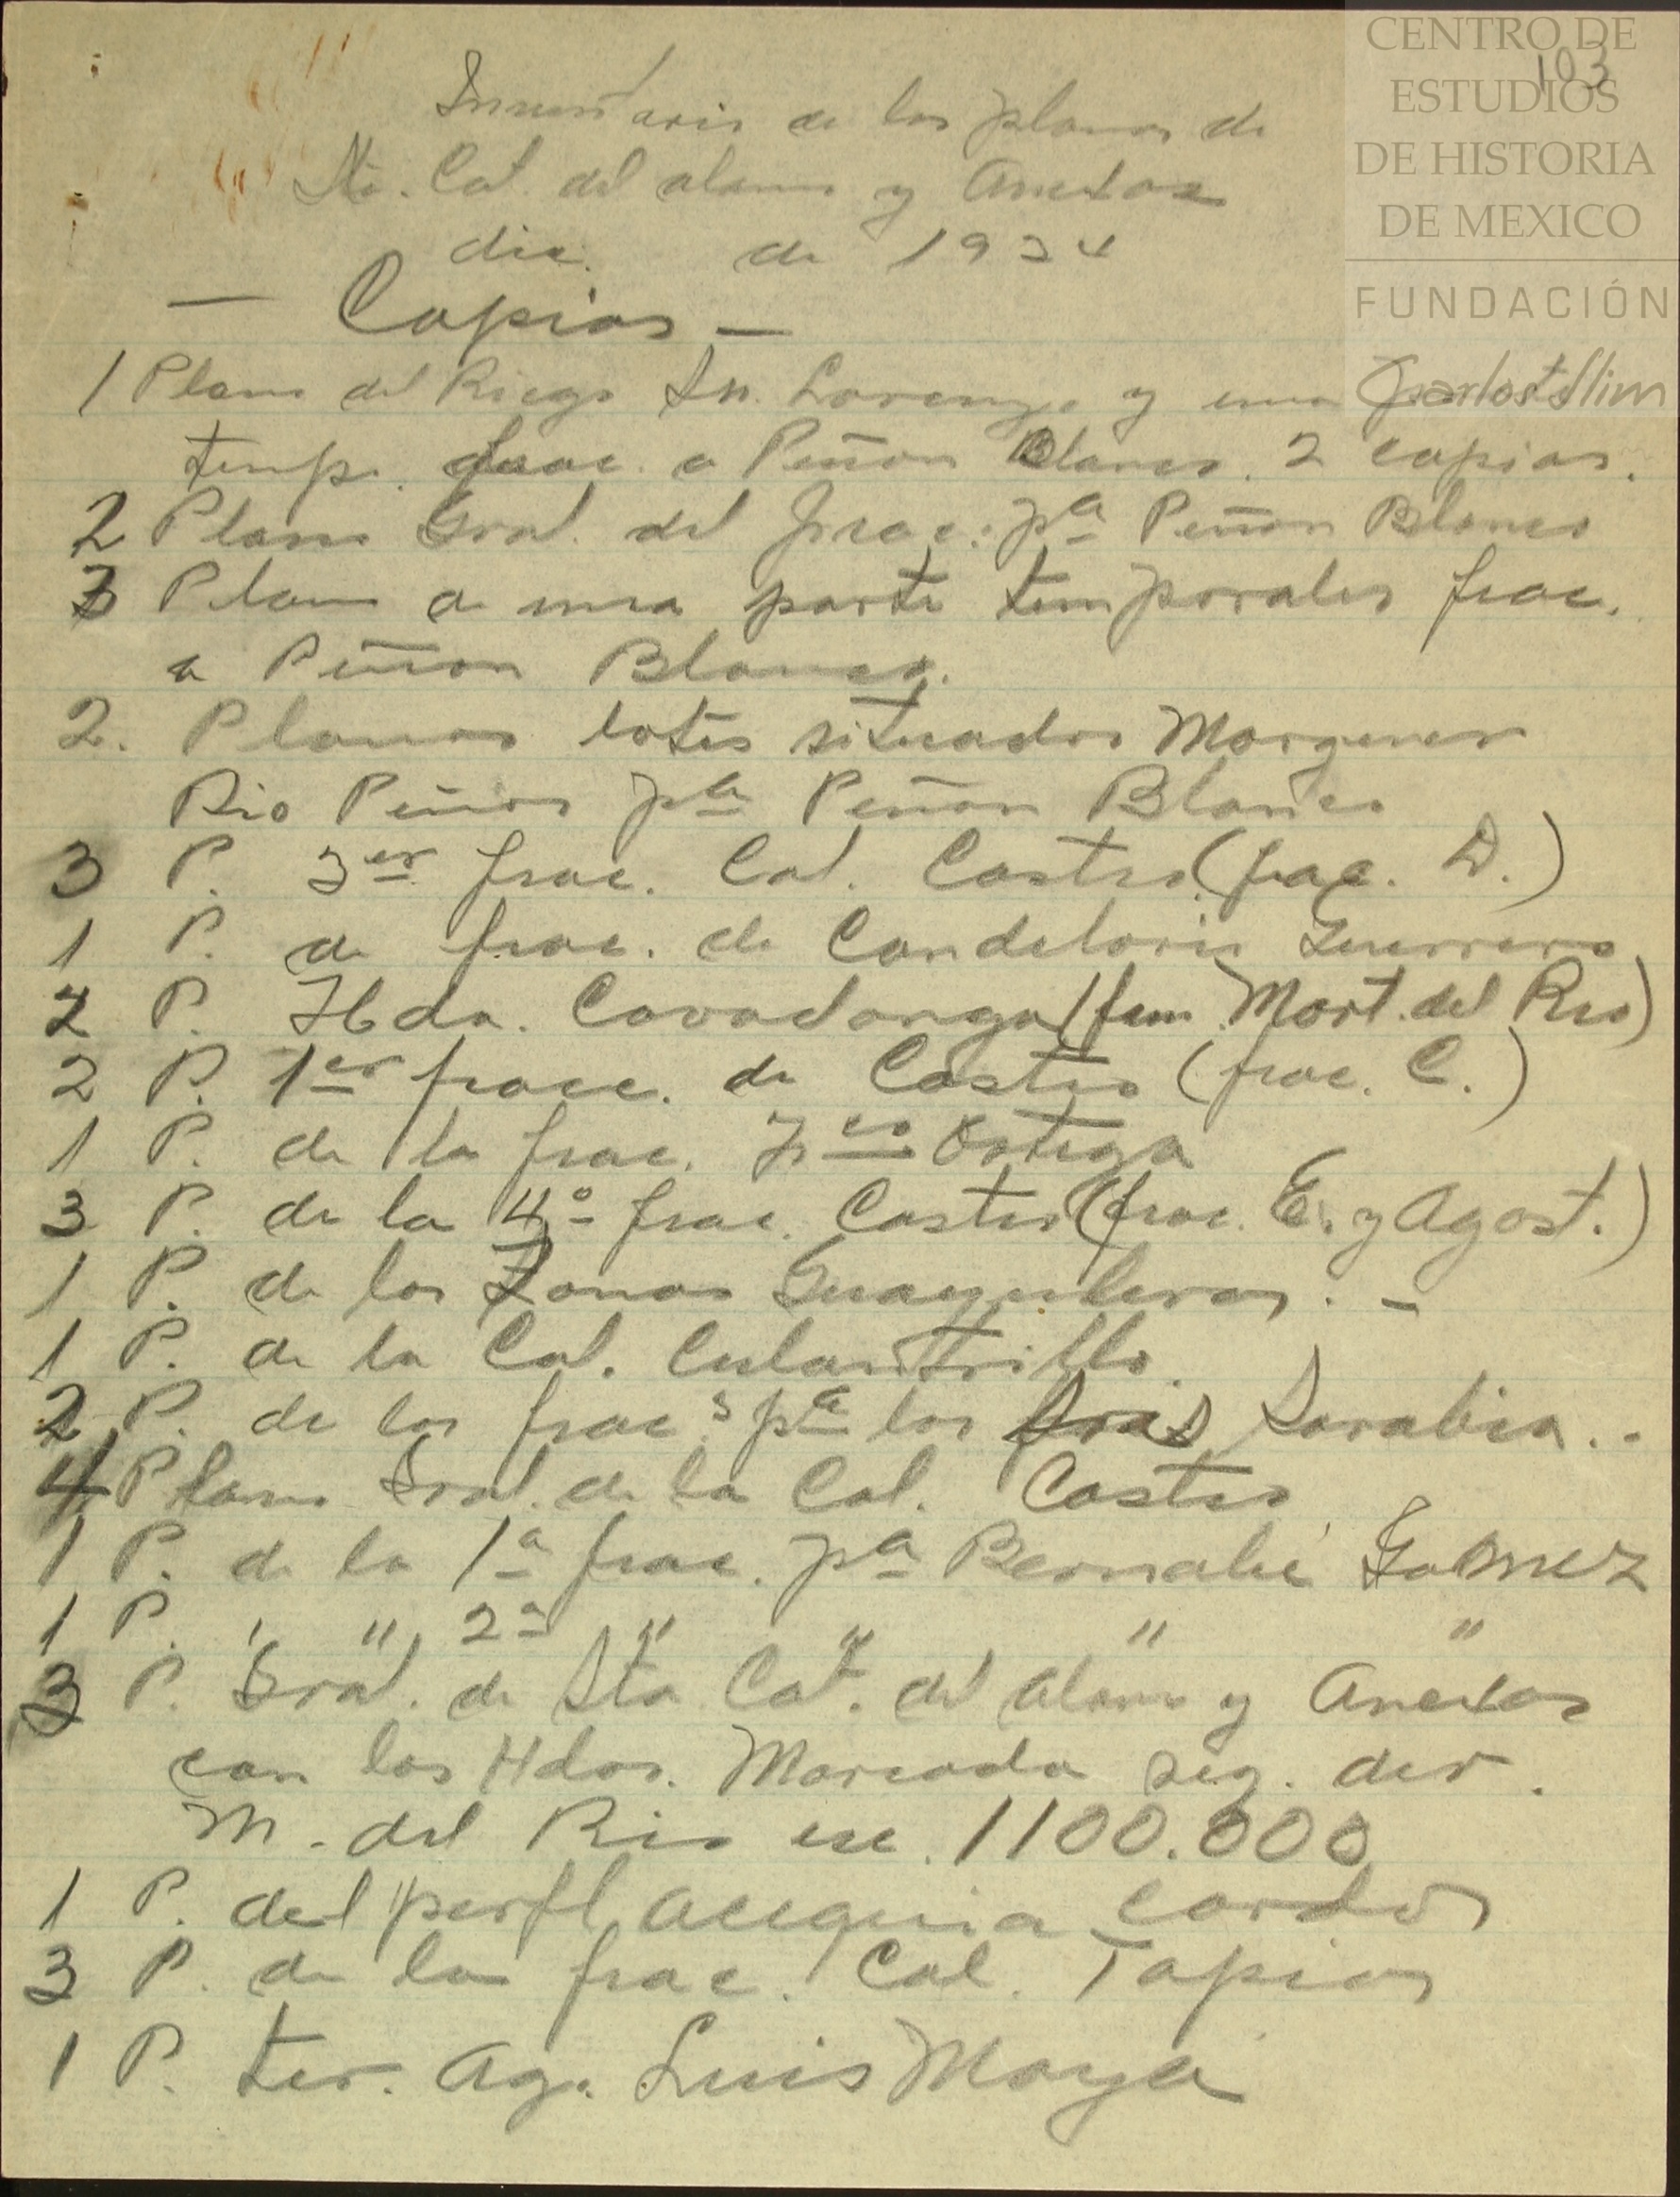 CENTRO DE
ESTUDIOS
DE HISTORIA
DE MEXICO
FUNDACIÓN
Carlos Slim
103
Inventario de los planos de
Sta. Cat. del alamo y Anexas
dic. de 1934
— Copias —
1 Plano del Riego Sn. Lorenzo y una parte
temp. frac. a Peñon Blanco. 2 copias.
2 Plano Gral. del frac. pa Peñon Blanco
3 Plano de una parte temporales frac.
a Peñon Blanco.
2. Planos lotes situados Margenes
Rio Peñon pa Peñon Blanco
3 P. 3er frac. Col. Castro (frac. D.)
1 P. de frac. de Candelario Guerrero
2 P. Hda. Covadonga (fam. Mart. del Rio)
2 P. 1er fracc. de Castro (frac. C.)
1 P. de la frac. Fco Ortega
3 P. de la 4o frac. Castro (frac. E. y Agost.)
1 P. de las Zonas Guayuleras. -
1 P. de la Col. Culantrillo.
2 P. de las fracs. pa los Sarabia. -
4 Plano Gral. de la Col. Castro
1 P. de la 1a frac. pa Bernabé Gamez
1 P. " " 2a " " " "
3 P. Gral. de Sta Cat. del alamo y Anexas
con las Hdas. Marcada seg. der.
M. del Rio esc. 1100.000
1 P. del perfl acequia cardos
3 P. de la frac. Col. Tapias
1 P. ter. Ag. Luis Moya